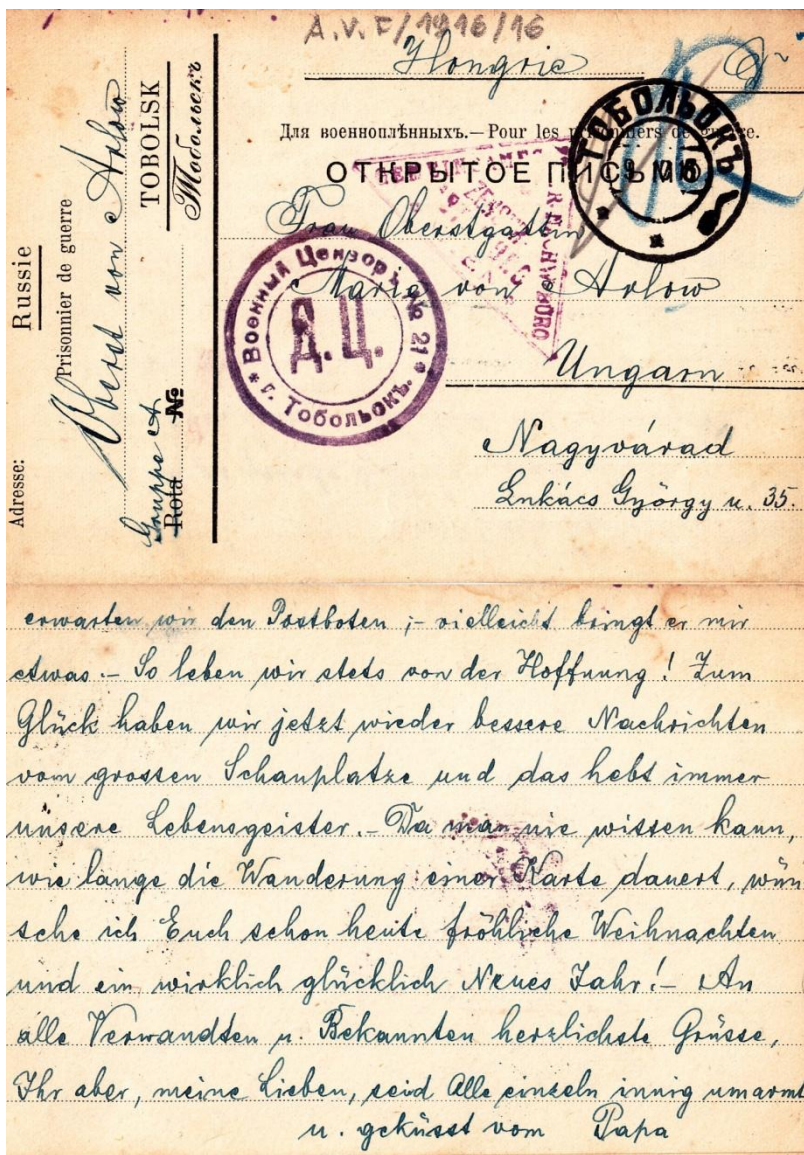 A.V.F/1916/16
Hongrie
Для военноплѣнныхъ.—Pour les prisonniers de guerre.
ОТКРЫТОЕ ПИСЬМО
Frau Oberstgattin
Marie von Arlow
Ungarn
Nagyvárad
Lukács György u. 35.
ТОБОЛЬСКЪ
Военный Цензоръ № 21
Д.Ц.
г. Тобольскъ.
Russie
Prisonnier de guerre
Oberst von Arlow
TOBOLSK
Тобольскъ
Adresse:
Gruppe A
Rota №
erwarten wir den Postboten ;- vielleicht bringt er mir
etwas.- So leben wir stets von der Hoffnung! Zum
Glück haben wir jetzt wieder bessere Nachrichten
vom grossen Schauplatze und das hebt immer
unsere Lebensgeister.- Da man nie wissen kann,
wie lange die Wanderung einer Karte dauert, wün
sche ich Euch schon heute fröhliche Weihnachten
und ein wirklich glücklich Neues Jahr!- An
alle Verwandten u. Bekannten herzlichste Grüsse,
Ihr aber, meine Lieben, seid Alle einzeln innig umarmt
u. geküsst vom Papa